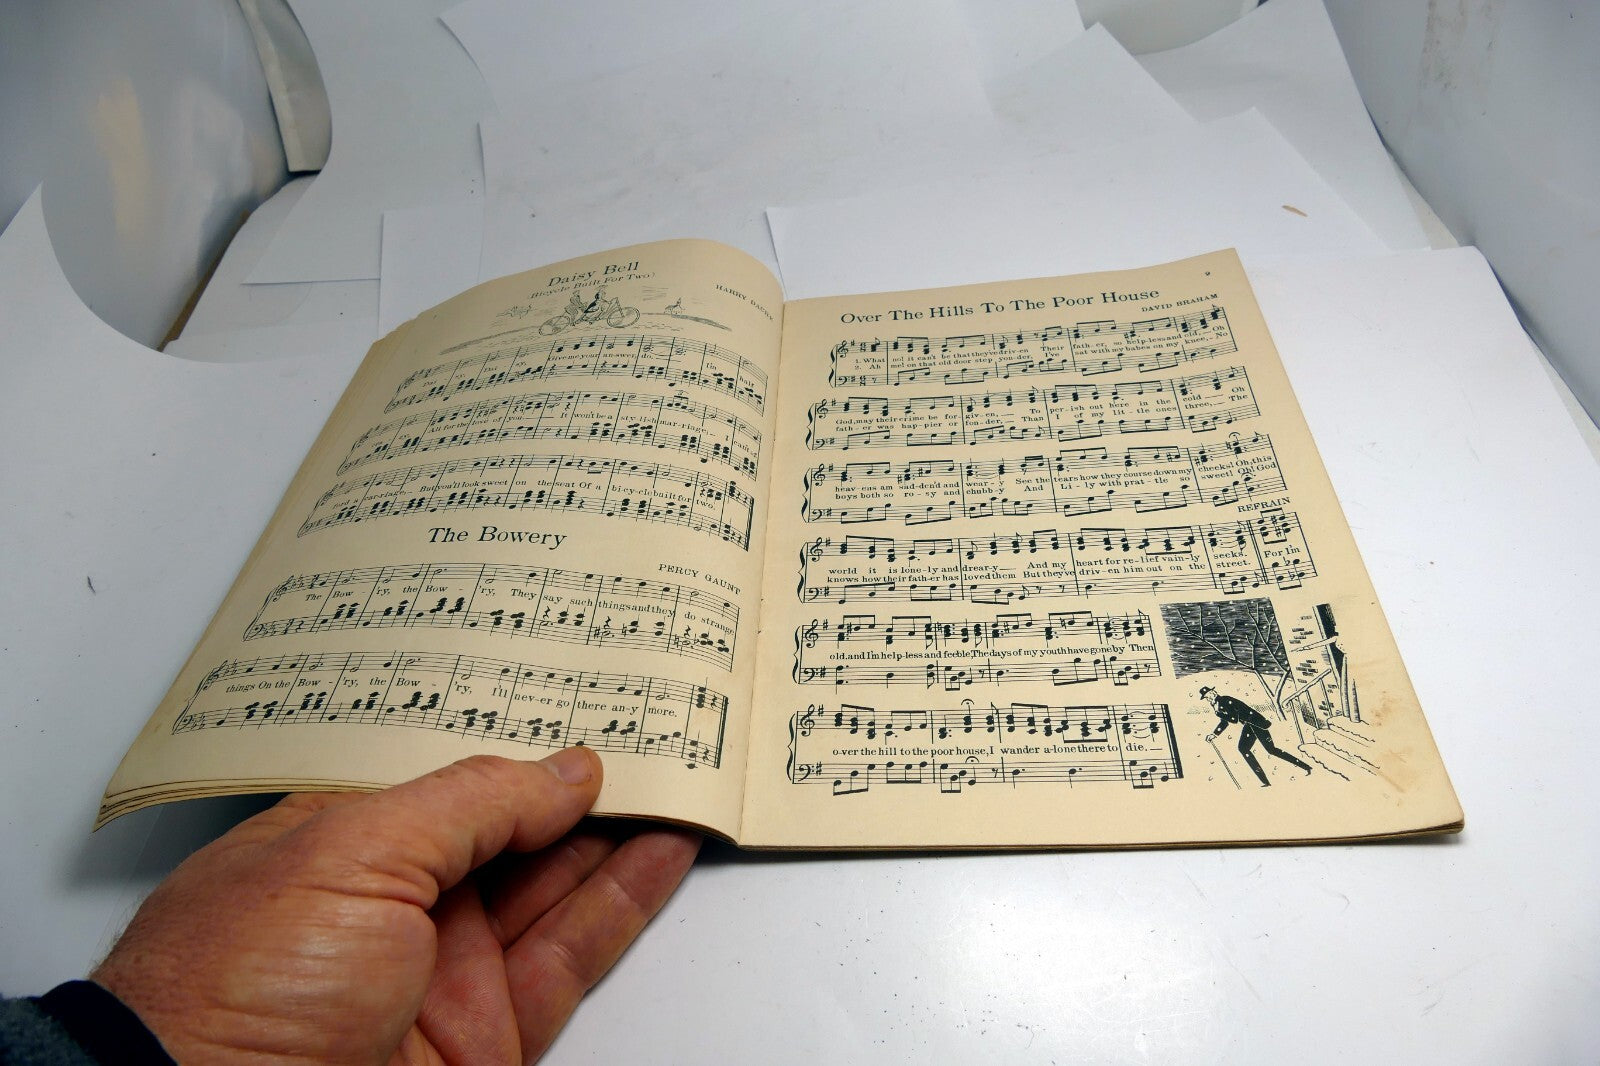 Daisy Bell
(Bicycle Built For Two)
HARRY DACRE
Dai - sy, Dai - sy, Give me your an-swer, do, I'm half
cra - zy, All for the love of you It won't be a sty-lish mar-riage, I can't af-
ford a car-riage, But you'll look sweet on the seat Of a bi-cy-cle built for two.
The Bowery
PERCY GAUNT
The Bow - 'ry, the Bow - 'ry, They say such things and they do strange
things On the Bow - 'ry, the Bow - 'ry, I'll nev-er go there an-y more.
9
Over The Hills To The Poor House
DAVID BRAHAM
1. What no! it can't be that they've driv-en Their fath-er, so help-less and old, Oh
2. Ah me! on that old door step yon-der, I've sat with my babes on my knee, No
God, may their crime be for-giv-en, To per-ish out here in the cold Oh
fath-er was hap-pier or fon-der, Than I of my lit-tle ones three, The
heav-ens am sad-den'd and wear-y See the tears how they course down my cheeks! Oh, this
boys both so ro-sy and chubb-y And Li-ly with prat-tle so sweet! Oh! God
REFRAIN
world it is lone-ly and drear-y And my heart for re-lief vain-ly seeks. For I'm
knows how their fath-er has loved them But they've driv-en him out on the street.
old, and I'm help-less and feeble, The days of my youth have gone by Then
o-ver the hill to the poor house, I wander a-lone there to die.